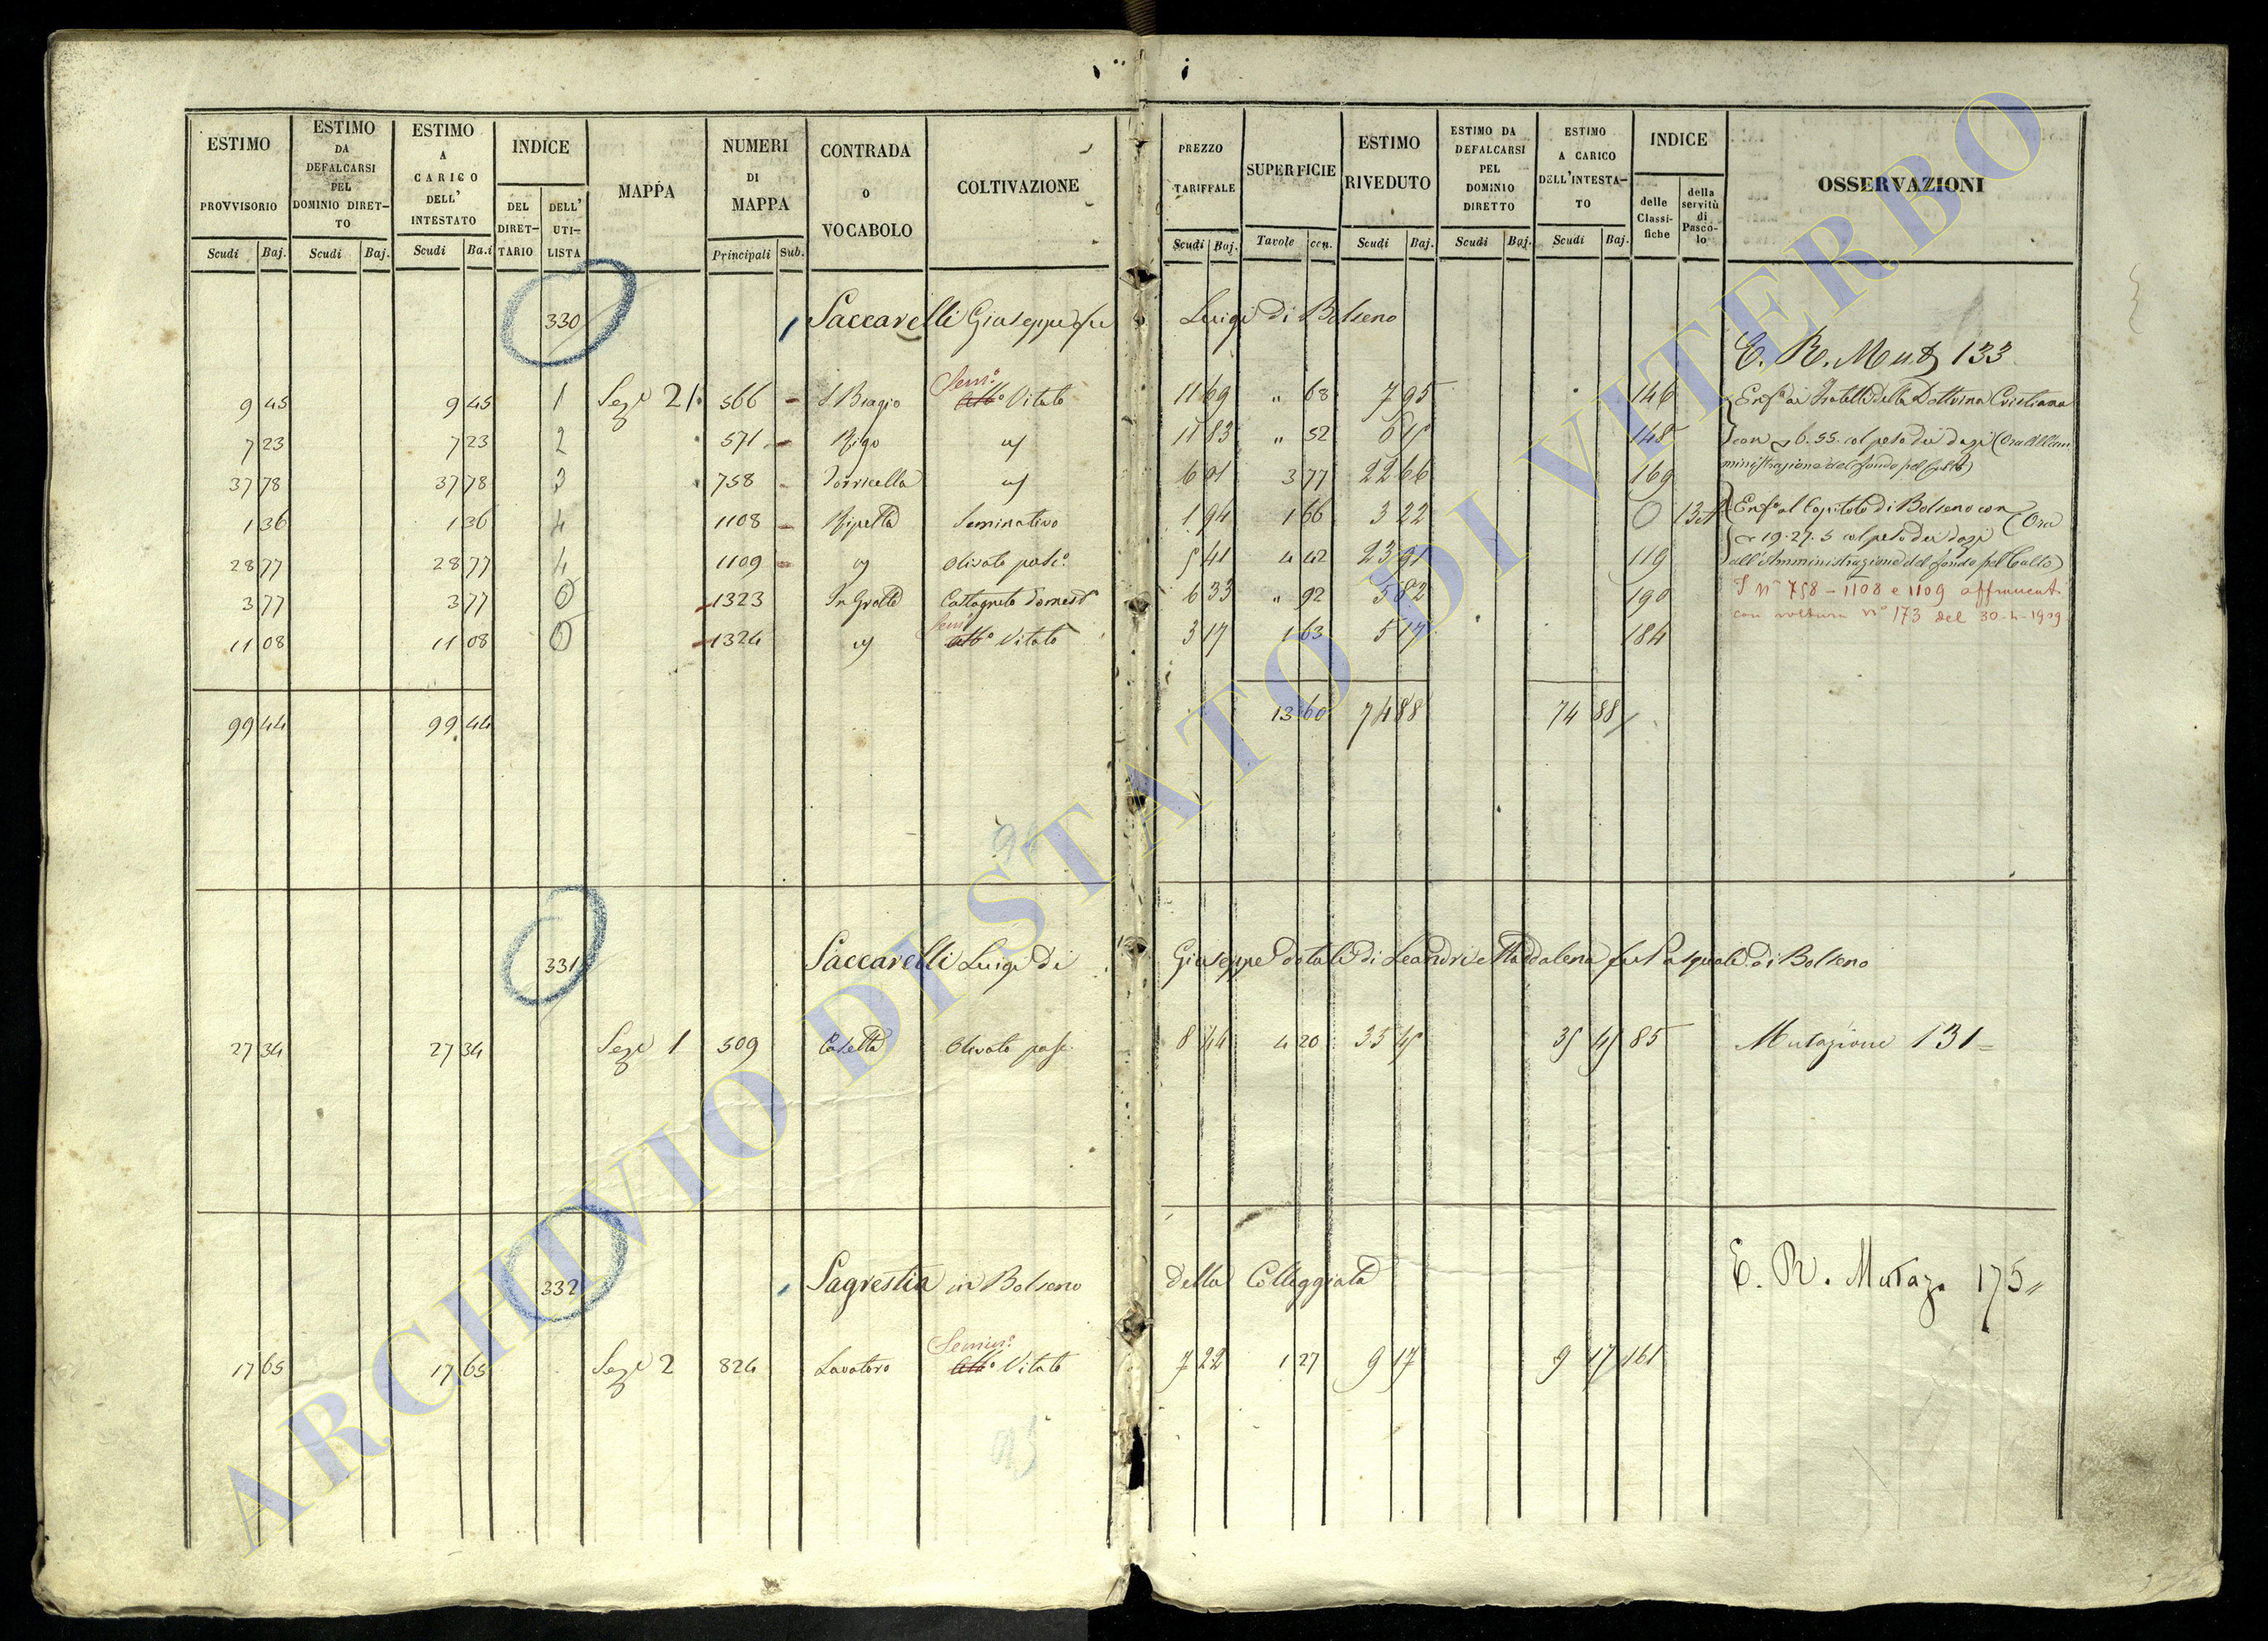 ESTIMO PROVVISORIO Scudi Baj.
ESTIMO DA DEFALCARSI PEL DOMINIO DIRET- TO Scudi Baj.
ESTIMO A CARICO DELL' INTESTATO Scudi Ba.i
INDICE DEL DIRET- TARIO DELL' UTI- LISTA
MAPPA
NUMERI DI MAPPA Principali Sub.
CONTRADA O VOCABOLO
COLTIVAZIONE
PREZZO TARIFFALE Scudi Baj.
SUPERFICIE Tavole cen.
ESTIMO RIVEDUTO Scudi Baj.
ESTIMO DA DEFALCARSI PEL DOMINIO DIRETTO Scudi Baj.
ESTIMO A CARICO DELL'INTESTA- TO Scudi Baj.
INDICE delle Classi- fiche della servitù di Pasco- lo
OSSERVAZIONI
330 Saccarelli Giuseppe fu Luigi di Bolseno
E. R. Mutz 133
9 45 9 45 1 Sezе 21 566 S. Biagio Semo Vitato 11 69 " 68 7 95 146 Enfa ai Fratelli della Dottrina Cristiana
7 23 7 23 2 571 Rigo 11 83 " 52 6 15 148 con 6.55. col peso dei dazi (Ora all'Am
37 78 37 78 3 758 Torricella 6 01 3 77 22 66 169 ministrazione del fondo pel Culto)
1 36 1 36 4 1108 Ripetta Seminativo 1 94 1 66 3 22 0 Enfa al Capitolo di Bolseno con (Ora
28 77 28 77 4 1109 Olivato pasco 5 41 4 42 23 91 119 19.27.5 col peso dei dazi
all'Amministrazione del fondo pel Culto)
3 77 3 77 0 1323 Castagneto domesto 6 33 " 92 5 82 190 I ni 758 - 1108 e 1109 affrancati
con voltura no 173 del 30-4-1909
11 08 11 08 0 1324 Semo Vitato 3 17 1 63 5 17 184
99 44 99 44 13 60 74 88 74 88
331 Saccarelli Luigi di Giuseppe dotale di Leandri Maddalena fu Pasquale di Bolseno
27 34 27 34 Sezе 1 509 Casetta Olivato pasc. 8 44 4 20 35 45 35 45 85 Mutazione 131
332 Sagrestia in Bolseno della Collegiata
E. R. Mutaz. 175
17 65 17 65 Sezе 2 824 Lavatoro Semino Vitato 7 22 1 27 9 17 9 17 161
ARCHIVIO DI STATO DI VITERBO